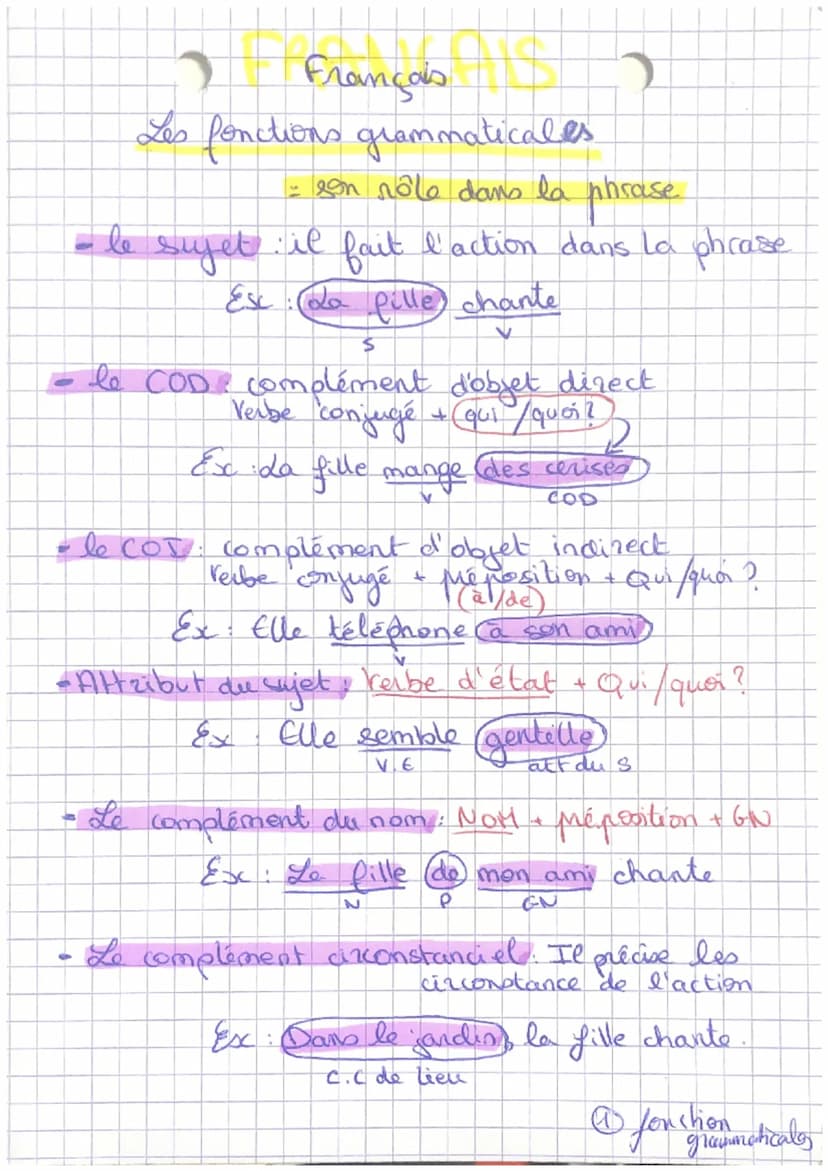 FRANÇAIS
Français
Les fonctions grammaticales
= son rôle dans la phrase
- le sujet : il fait l'action dans la phrase
Ex : La fille chante
S V
- le COD : complément d'objet direct
Verbe conjugé + qui / quoi ?
Ex : La fille mange des cerises
V COD
- le COI : complément d'objet indirect
Verbe conjugé + préposition + Qui/quoi ?
(à/de)
Ex : Elle téléphone à son ami
V
- Attribut du sujet : Verbe d'état + Qui/quoi ?
Ex : Elle semble gentille
V.E att du S
- Le complément du nom : NOM + préposition + GN
Ex : La fille de mon ami chante
N P GN
- Le complément circonstanciel : Il précise les
circonstance de l'action
Ex : Dans le jardin, la fille chante.
C.C de lieu
① fonction
grammaticales